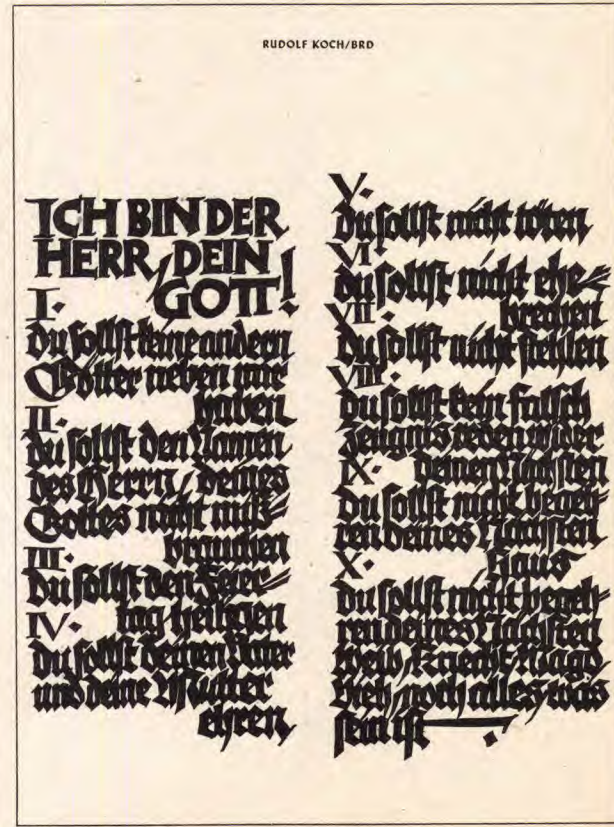 RUDOLF KOCH/BRD
ICH BIN DER
HERR, DEIN
GOTT!
I·
Du sollst keine andern
Götter neben mir
haben
II·
Du sollst den Namen
des Herrn, deines
Gottes nicht miß-
brauchen
III·
Du sollst den Feier-
tag heiligen
IV·
Du sollst deinen Vater
und deine Mutter
ehren,
V·
Du sollst nicht töten,
VI·
Du sollst nicht ehe-
brechen
VII·
Du sollst nicht stehlen
VIII·
Du sollst kein falsch
Zeugnis reden wider
deinen Nächsten
IX·
Du sollst nicht begeh-
ren deines Nächsten
Haus
X·
Du sollst nicht begeh-
ren deines Nächsten
Weib, Knecht, Magd
Vieh, noch alles, was
sein ist.